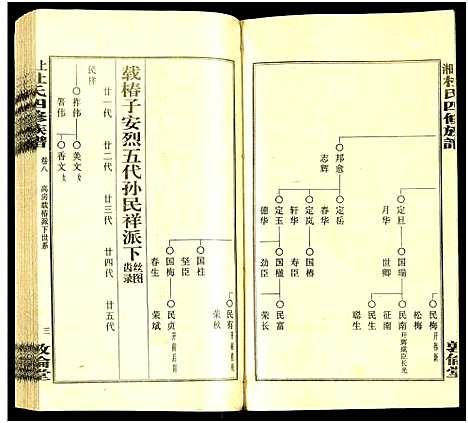 湘杜氏四修族谱
邦愈
志辉
定旺
月华
定岳
春华
定岚
轩华
定玉
德华
国瑞
世卿
国椿
寿臣
国樾
劲臣
民梅
松梅
民南
征南
民生
聪生
民富
荣长
敦伦堂
国柱
坚臣
国梅
春生
民有
荣秋
民贞
荣斌
载椿子安烈五代孙民祥派下
丝图
齿录
廿一代
廿二代
廿三代
廿四代
廿五代
民祥
祚伟
笞伟
美文女
香文女
上杜氏四修族谱
卷八
高房载椿派下世系
三
敦伦堂